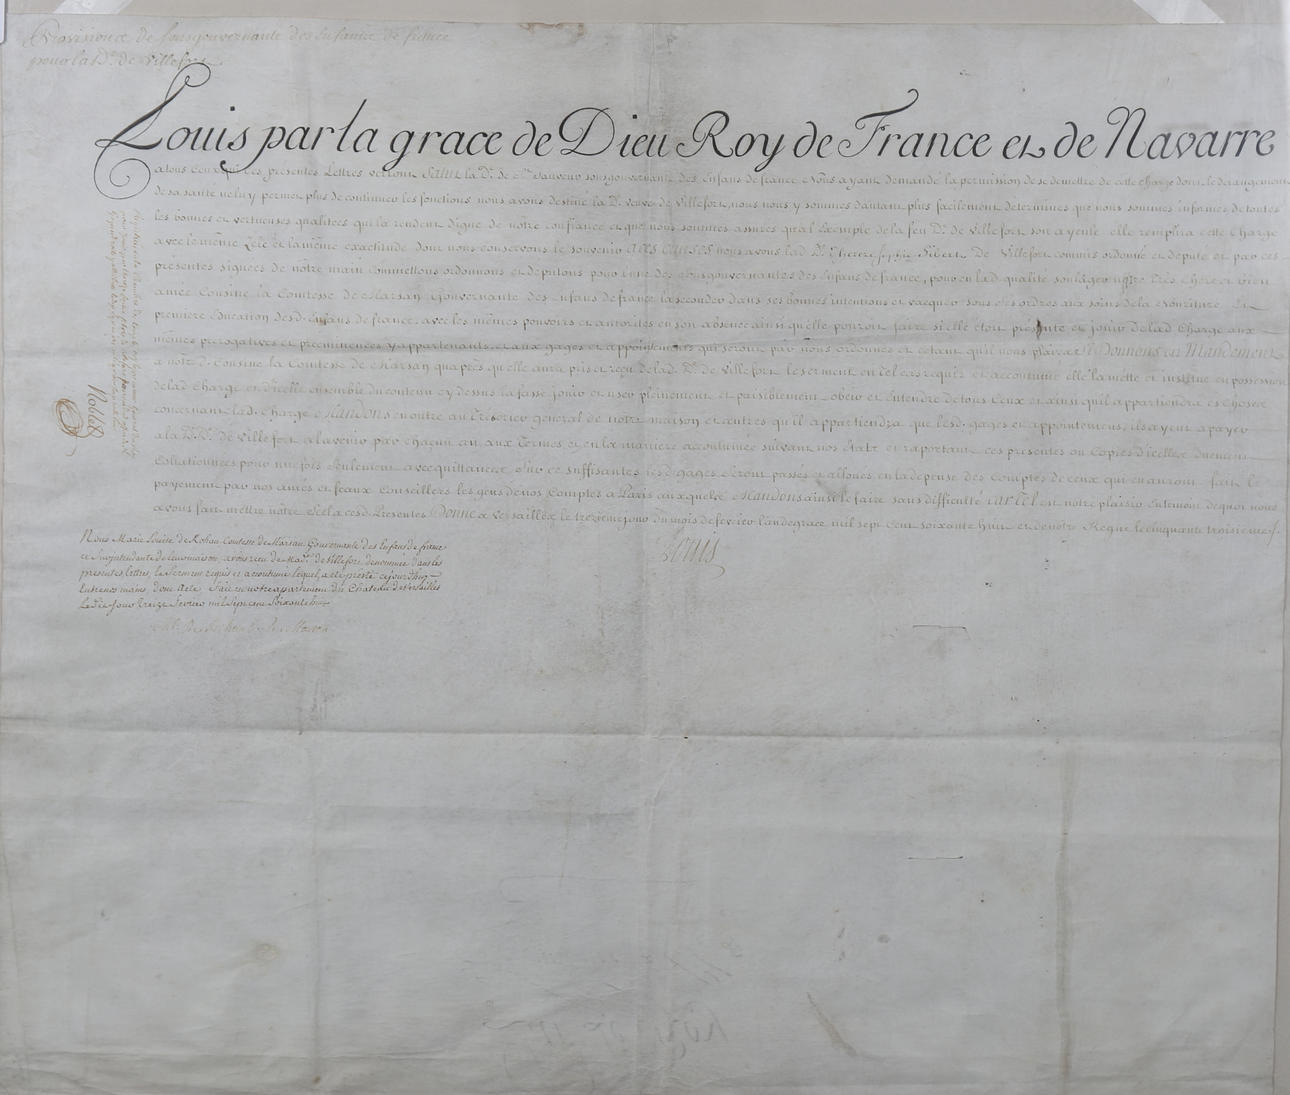 Provisions de sousgouvernante des Enfants de france
pour la D.e de Villefort
Louis par la grace de Dieu Roy de France et de Navarre
atous ceux qui ces presentes Lettres verront Salut la D.e de S.t Sauveur sousgouvernante des Enfans de france Nous ayant demandé la permission de se demettre de cette charge dont le derangement
de sa santé ne luy permet plus de continuer les fonctions nous avons destiné la D.e veuve de Villefort, nous nous y sommes dautant plus facilement determines que nous sommes informés de toutes
les bonnes et vertueuses qualitees qui la rendent digne de notre confiance et que nous sommes assurés qu'al Exemple de la feu D.e de Villefort son ayeule elle remplira cette charge
avec le même Zele et la même exactitude dont nous conservons le souvenir A Ces Causes nous avons lad. D.e Therese de Villefort commis ordonné et deputé et par ces
presentes signées de nôtre main commettons ordonnons et deputons pour une des sousgouvernantes des Enfans de france, pour en lad. qualité soulager notre Trés chere et bien
amée Cousine la Comtesse de Marsan Gouvernante des Enfans de france la seconder dans ses bonnes intentions et vacquer sous ses ordres aux soins de la Nouriture et
premiere Education desd. Enfans de france, avec les mêmes pouvoirs et autorités en son absence ainsi qu'elle pouroit faire si elle étoit présente et jouir de lad. Charge aux
mêmes prerogatives et preeminences y appartenants, et aux gages et appointements qui seront par nous ordonnés et cetant qu'il nous plaira Si Donnons en Mandement
a nôtre d. Cousine la Comtesse de Marsan qu'aprés qu'elle aura pris et reçu de lad. D.e de Villefort le serment en tel cas requis et accoutumé elle la mette et institue en possession
delad. Charge et d'icelle ensemble du contenu cy dessus la fasse jouir et user pleinement et paisiblement obeir et Entendre de tous ceux et ainsi qu'il appartiendra és choses
concernant lad. Charge Mandons en outre au Trésorier general de notre maison et autres qu'il appartiendra que lesd. gages et appointemens, ils ayent a payer
a la D. D.e de Villefort a l'avenir par chacun an aux Termes et en la maniere accoutumée suivant nos Etats et raportant ces presentes ou Copies d'icelles duement
Collationnées pour une fois seulement avec quittances sur ce suffisantes lesd. gages seront passés et alloués en la depense des comptes de ceux qui en auront fait le
payement par nos amés et feaux Conseillers les gens de nos Comptes a Paris auxquels Mandons ainsi le faire sans difficulté Car tel est notre plaisir En temoin de quoi nous
avons fait mettre nôtre scel a cesd. Presentes Donné a Versailles le treizieme jour du mois de fevrier l'an de grace mil sept cent soixante huit et de notre Regne le cinquante troisieme
Louis
Noblet
Nous Marie Louise de Rohan Comtesse de Marsan Gouvernante des Enfans de france
et Surintendante de leur maison, avons reçu de Mad.e de Villefort denommée dans les
presentes lettres, le Serment requis et accoutumé lequel, a eté presté cejourd'huy
Entre nos mains, dont Acte Fait en notre appartement du Chateau de Versailles
Ledit Jour treize fevrier mil Sept cent Soixante huit